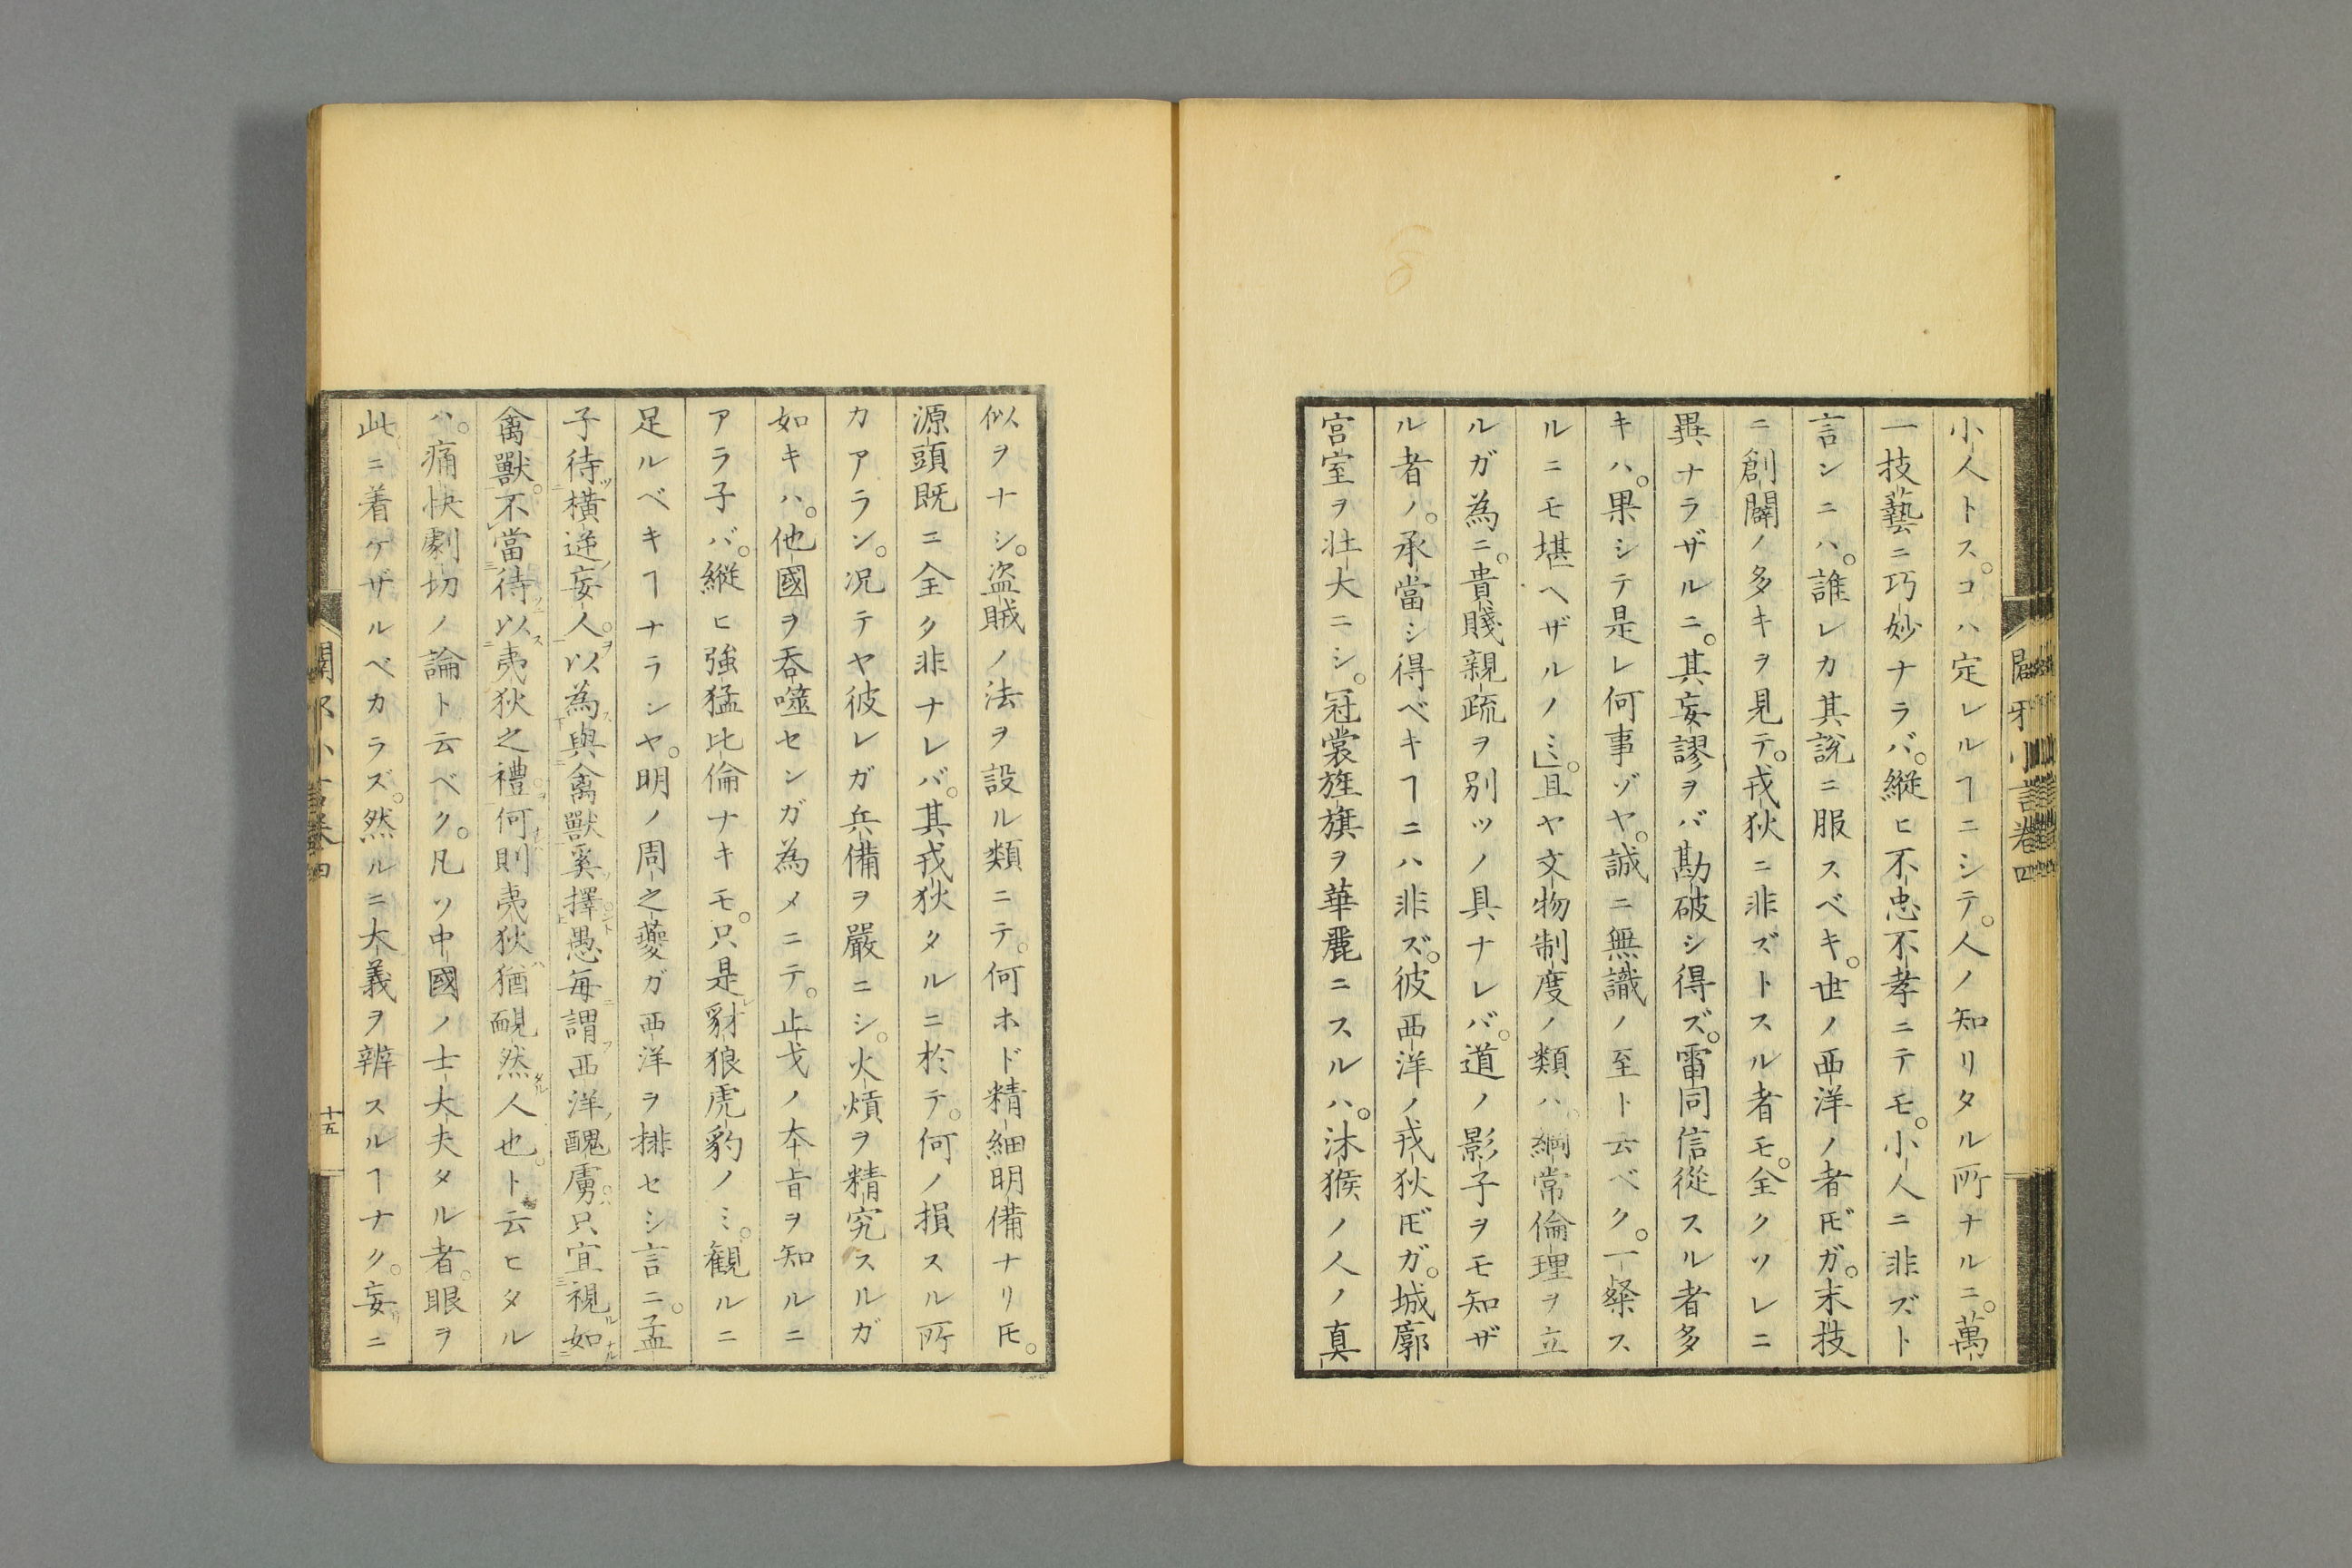 小人トス。コハ定レルヿニシテ。人ノ知リタル所ナルニ。萬
一技藝ニ巧妙ナラバ。縱ヒ不忠不孝ニテモ。小人ニ非ズト
言ンニハ。誰レカ其説ニ服スベキ。世ノ西洋ノ者𪜈ガ。末技
ニ創闢ノ多キヲ見テ。戎狄ニ非ズトスル者モ。全クソレニ
異ナラザルニ。其妄謬ヲバ勘破シ得ズ。雷同信從スル者多
キハ。果シテ是レ何事ゾヤ。誠ニ無識ノ至ト云ベク。一粲ス
ルニモ堪ヘザルノミ」。且ヤ文物制度ノ類ハ。綱常倫理ヲ立
ルガ為ニ。貴賤親疏ヲ別ツノ具ナレバ。道ノ影子ヲモ知ザ
ル者ノ。承當シ得ベキヿニハ非ズ。彼西洋ノ戎狄𪜈ガ。城廓
宮室ヲ壯大ニシ。冠裳旌旗ヲ華麗ニスルハ。沐猴ノ人ノ真
似ヲナシ。盗賊ノ法ヲ設ル類ニテ。何ホド精細明備ナリ𪜈。
源頭既ニ全ク非ナレバ。其戎狄タルニ於テ。何ノ損スル所
カアラン。况テヤ彼レガ兵備ヲ嚴ニシ。火熕ヲ精究スルガ
如キハ。他國ヲ吞噬センガ為メニテ。止戈ノ本旨ヲ知ルニ
アラ子バ。縱ヒ強猛比倫ナキモ。只是レ豺狼虎豹ノミ。観ルニ
足ルベキヿナランヤ。明ノ周之夔ガ西洋ヲ排セシ言ニ。孟
子待橫逆妄人。以為與禽獸奚擇愚每謂西洋醜虜只宜視如
禽獸。不當待以夷狄之禮何則夷狄猶靦然人也。ト云ヒタル
ハ。痛快劇切ノ論ト云ベク。凡ソ中國ノ士大夫タル者。眼ヲ
此ニ着ケザルベカラズ。然ルニ大義ヲ辨スルヿナク。妄リニ
闢邪小言卷四
十五